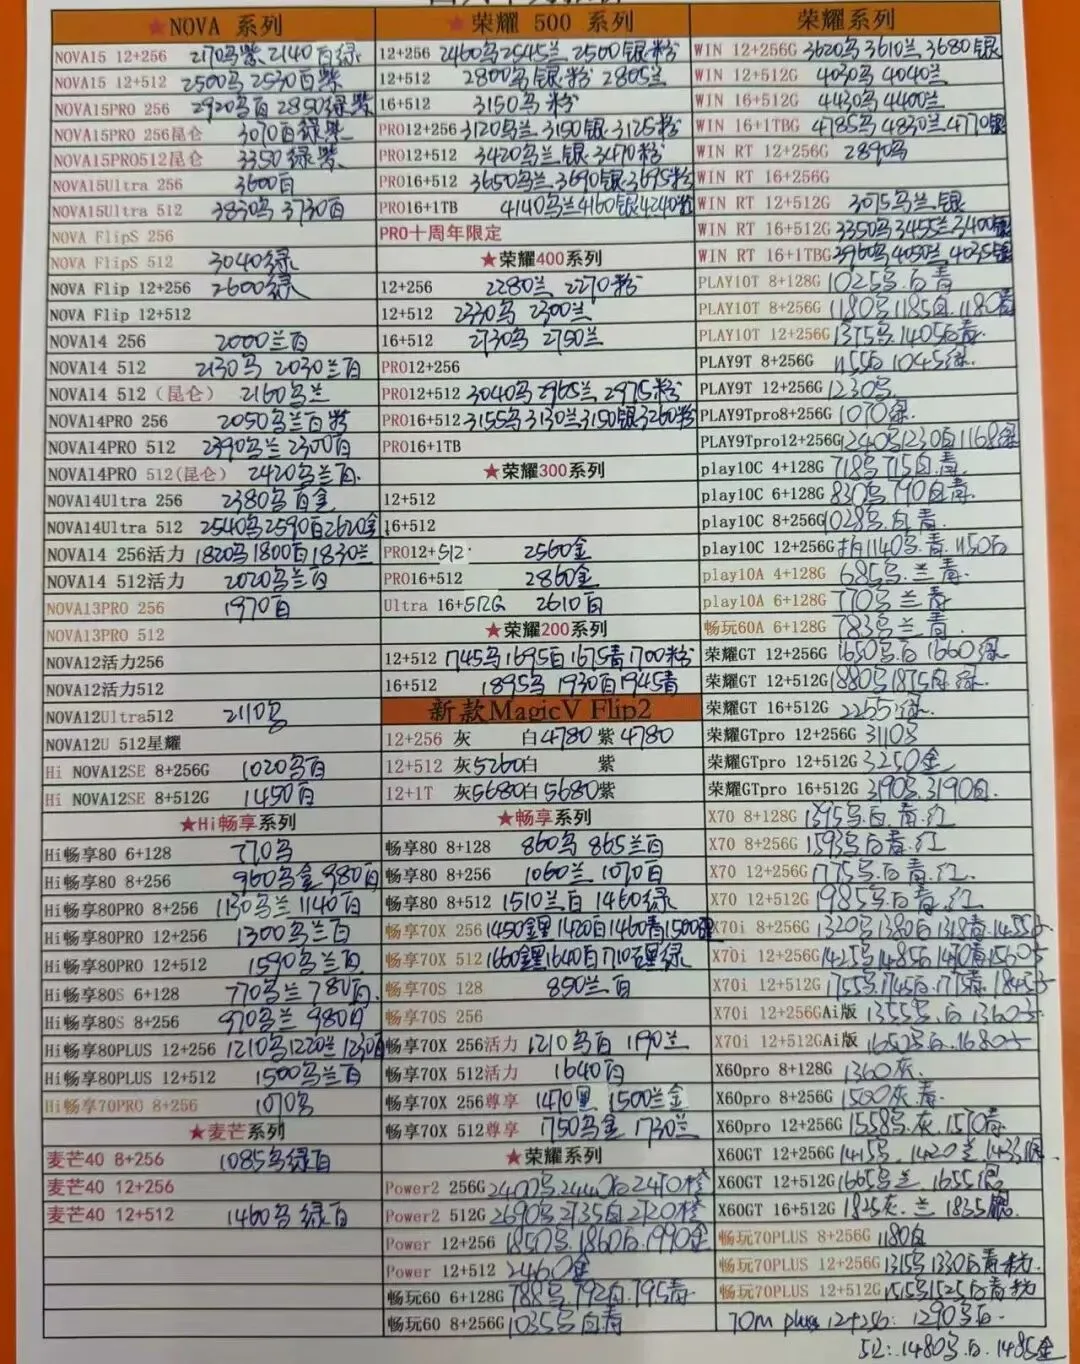 ★NOVA 系列
NOVA15 12+256 2170乌紫 2140白绿
NOVA15 12+512 2500乌 2530白紫
NOVA15PRO 256 2920乌白 2850绿紫
NOVA15PRO 256昆仑 3070白绿紫
NOVA15PRO512昆仑 3350绿紫
NOVA15Ultra 256 3600白
NOVA15Ultra 512 3830乌 3730白
NOVA FlipS 256
NOVA FlipS 512 3040绿
NOVA Flip 12+256 2600绿
NOVA Flip 12+512
NOVA14 256 2000兰白
NOVA14 512 2130乌 2030兰白
NOVA14 512（昆仑） 2160乌兰
NOVA14PRO 256 2050乌兰白紫
NOVA14PRO 512 2390乌兰 2300白
NOVA14PRO 512(昆仑) 2420乌兰白
NOVA14Ultra 256 2380乌白金
NOVA14Ultra 512 2540乌2590白2620金
NOVA14 256活力 1820乌1800白1830兰
NOVA14 512活力 2020乌兰白
NOVA13PRO 256 1970白
NOVA13PRO 512
NOVA12活力256
NOVA12活力512
NOVA12Ultra512 2110乌
NOVA12U 512星耀
Hi NOVA12SE 8+256G 1020乌白
Hi NOVA12SE 8+512G 1450白
★Hi畅享系列
Hi畅享80 6+128 770乌
Hi畅享80 8+256 960乌金 980白
Hi畅享80PRO 8+256 1130乌兰 1140白
Hi畅享80PRO 12+256 1300乌兰白
Hi畅享80PRO 12+512 1590乌兰白
Hi畅享80S 6+128 770乌兰 780白
Hi畅享80S 8+256 970乌兰 980白
Hi畅享80PLUS 12+256 1210乌1220兰1230白
Hi畅享80PLUS 12+512 1500乌兰白
Hi畅享70PRO 8+256 1070乌
★麦芒系列
麦芒40 8+256 1085乌绿白
麦芒40 12+256
麦芒40 12+512 1460乌绿白
★荣耀 500 系列
12+256 2460乌2545兰 2500银粉
12+512 2800乌银粉 2805兰
16+512 3150乌粉
PRO12+256 3120乌兰 3150银 3125粉
PRO12+512 3420乌兰银 3470粉
PRO16+512 3650乌兰 3690银 3695粉
PRO16+1TB 4140乌兰4160银4240粉
PRO十周年限定
★荣耀400系列
12+256 2280兰 2270粉
12+512 2330乌 2300兰
16+512 2730乌 2750兰
PRO12+256
PRO12+512 3040乌2965兰 2975粉
PRO16+512 3155乌3130兰3150银3260粉
PRO16+1TB
★荣耀300系列
12+512
16+512
PRO12+512 2560金
PRO16+512 2860金
Ultra 16+512G 2610白
★荣耀200系列
12+512 1745乌1695白1675青1700粉
16+512 1895乌 1930白1945青
新款MagicV Flip2
12+256 灰 白4780 紫4780
12+512 灰5260白 紫
12+1T 灰5680白5680紫
★畅享系列
畅享80 8+128 860乌 865兰白
畅享80 8+256 1060兰 1070白
畅享80 8+512 1510兰白 1460绿
畅享70X 256 1450金黑 1420白1460青1500
畅享70X 512 1660金黑1640白 绿
畅享70S 128 850兰白
畅享70S 256
畅享70X 256活力 1210乌白 1190兰
畅享70X 512活力 1640白
畅享70X 256尊享 1470黑 1500兰金
畅享70X 512尊享 1750乌金 1730兰
★荣耀系列
Power2 256G 2400乌2440白2470橙
Power2 512G 2690乌 白2720橙
Power 12+256 1850乌.1860白.1990金
Power 12+512 2460金
畅玩60 6+128G 788乌.792白.795青
畅玩60 8+256G 1035乌白青
荣耀系列
WIN 12+256G 3620乌 3610兰 3680银
WIN 12+512G 4030乌 4040兰
WIN 16+512G 4430乌 4400兰
WIN 16+1TBG 4785乌 4830兰 4770银
WIN RT 12+256G 2890乌
WIN RT 16+256G
WIN RT 12+512G 3075乌兰银
WIN RT 16+512G 3350乌3455兰3400银
WIN RT 16+1TBG 3960乌4050兰 4035银
PLAY10T 8+128G 1025乌.白青
PLAY10T 8+256G 1180乌1185白.1180青
PLAY10T 12+256G 1375乌.1405白青.
PLAY9T 8+256G 1045绿
PLAY9T 12+256G 1230乌
PLAY9Tpro8+256G 1070绿
PLAY9Tpro12+256G 1240乌1230白1168绿
play10C 4+128G 718乌 715白.青
play10C 6+128G 830乌 790白青
play10C 8+256G 1028乌.白青.
play10C 12+256G 1140乌.青.1150白
play10A 4+128G 685乌.兰青.
play10A 6+128G 770乌兰青
畅玩60A 6+128G 783乌兰青
荣耀GT 12+256G 1650乌.白 1660绿
荣耀GT 12+512G 1880乌1875白.绿.
荣耀GT 16+512G 2255绿.
荣耀GTpro 12+256G 3110乌
荣耀GTpro 12+512G 3250金
荣耀GTpro 16+512G 3190乌.3190白.
X70 8+128G 1395乌.白.青.红
X70 8+256G 1593乌.白青.红
X70 12+256G 1775乌.白青.红
X70 12+512G 1985乌.白青.红
X70i 8+256G 1320乌1380白1318青.1455
X70i 12+256G 1425乌1485白1470青1560
X70i 12+512G 1755乌.1745白.1775青.1845
X70i 12+256GAi版 1355乌.白 1360
X70i 12+512GAi版 1650乌白.1680
X60pro 8+128G 1360灰.
X60pro 8+256G 1560灰.青.
X60pro 12+256G 1558乌.灰.1570青
X60GT 12+256G 1415乌.1420兰 1433银.
X60GT 12+512G 1665乌兰 1655银
X60GT 16+512G 1825灰.兰 1835银.
畅玩70PLUS 8+256G 1180白
畅玩70PLUS 12+256G 1315乌1330白青
畅玩70PLUS 12+512G 1515乌1525白青
70m plus 12+256: 1290乌白.
512: 1480乌白.1485金